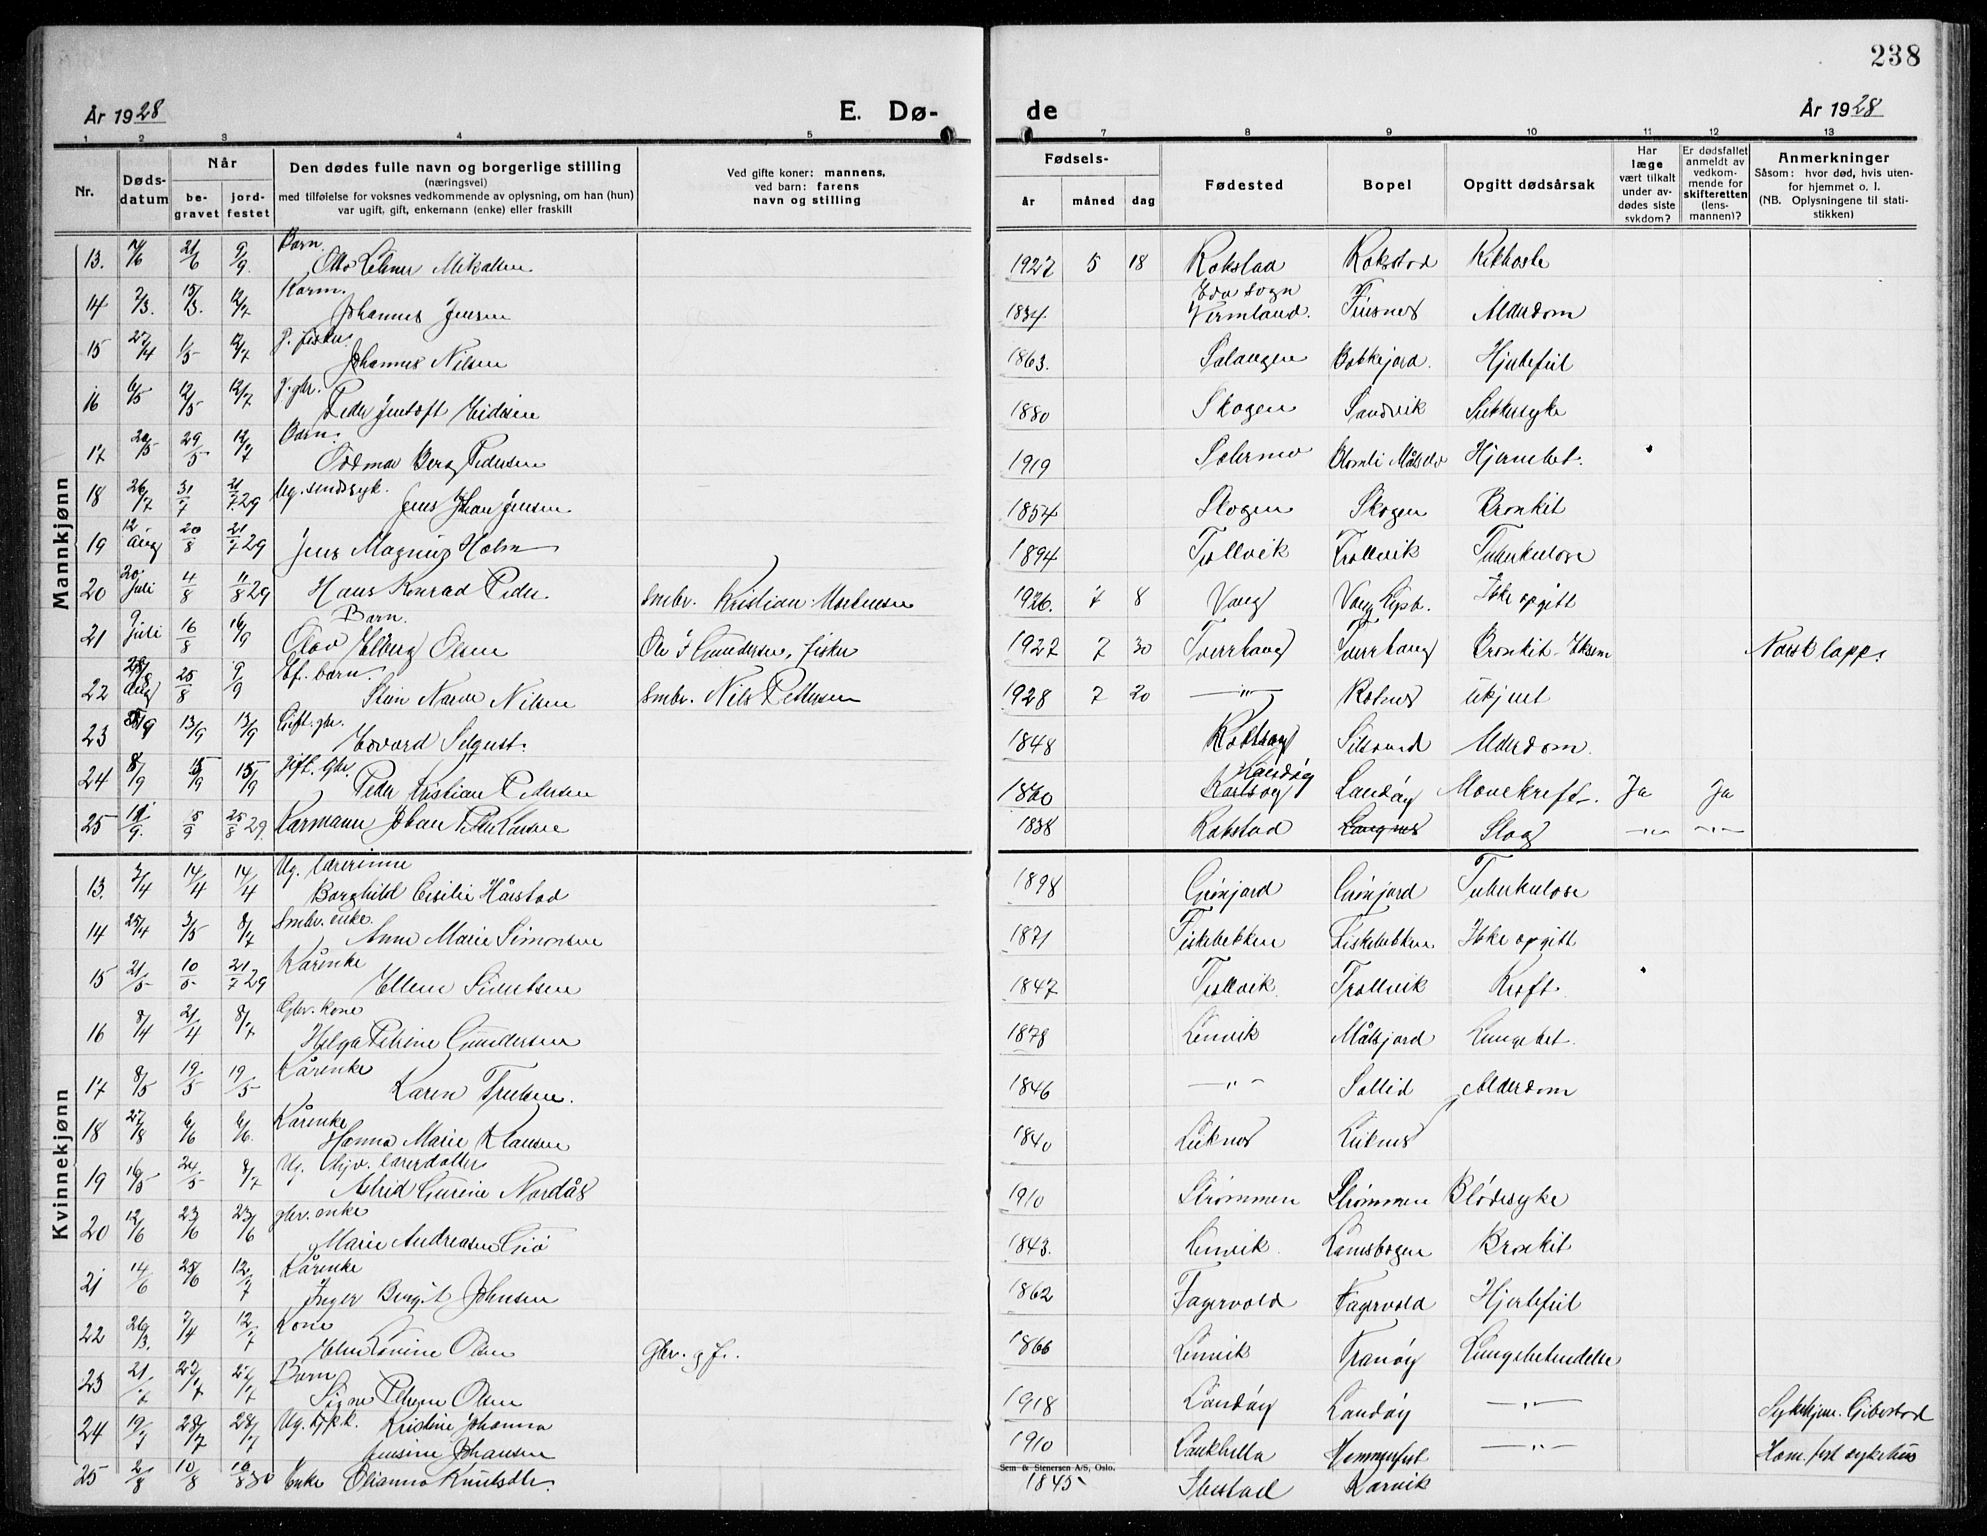 238
År 1928 E. Dø- de År 1928
1 2 3 4 5 7 8 9 10 11 12 13
Nr. Døds-datum Når be-gravet jord-festet
Den dødes fulle navn og borgerlige stilling
(næringsvei)
med tilføielse for voksnes vedkommende av oplysning, om han (hun)
var ugift, gift, enkemann (enke) eller fraskilt
Ved gifte koner: mannens,
ved barn: farens
navn og stilling
Fødsels- år måned dag
Fødested Bopel Opgitt dødsårsak
Har læge vært tilkalt under avdødes siste sykdom?
Er dødsfallet anmeldt av vedkommende for skifteretten (lensmannen)?
Anmerkninger
Såsom: hvor død, hvis utenfor hjemmet o. l.
(NB. Oplysningene til statistikken)
Mannkjønn
13. 21/6 9/9. Barn. Mikalsen 1927 5 18 Rokstad Rokstad Kikhoste
14 2/3. 15/3. 12/7 Johannes Jensen 1834 Eda sogn Vermland. Finsnes Alderdom
15 27/4 1/5 12/7 Johannes Nilsen 1863. Salangen Hjertefeil
16 6/5 12/5 12/7 Peder Jentoft 1880 Skogen Sandvik Sukkersyke
17 29/5 12/7 Barn. Oddmar Berg Pedersen 1919 Målselv Hjernebet.
18 26/7 31/7 21/7 29 Ug. sindssyk. Jens Johan Jensen 1854 Skogen Skogen Bronkit
19 12 Aug 20/8 21/7 29 Jens Magnus Holm 1894 Trollvik Trollvik Tuberkulose
20 20 Juli 4/8 11/8 29 Hans Konrad Peder. Smbr. Kristian Mortensen 1926. 7 8 Vang Vang Ikke opgitt
21 9 Juli 16/8 16/9 Barn. Olav Elberg Olsen Ole J Gundersen, fisker 1927 7 30 Bronkit - Eksem Norsk lapp.
22 Aug 25/8 9/9 barn. Stein Nilsen Smbr. Nils Pettersen 1928 7 20 —„— ukjent
23 13/9 13/9 Gift. gbr. Edvard Selqust. 1848 Alderdom.
24 8/9 15/9 15/9 Gift. Gbr. Peder Kristian Pedersen 1860 Sandøy Mavekreft. Ja Ja
25 11/9. 15/9 25/8 29. Karmann Johan 1838 Rokstad Slag —„— —„—
Kvinnekjønn
13. 3/4 14/4 14/4 Ug. Lærerinne Borghild Cesilie Hårstad 1898 Grønjord Grønjord Tuberkulose
14 25/4 3/5 8/7 Smbr. enke. Anne Marie Simonsen 1871 Fiskebekken Fiskebekken Ikke opgitt
15 21/5 10/5 21/7 29 Kårenke Ellen Sivertsen 1847 Trollvik Trollvik Kreft.
16 8/4 21/4 8/7 Gbr. kone Helga Petrine Gundersen 1878 Lenvik Målsjord Lungebet.
17 8/5 19/5 19/5 Kårenke Karen 1846 —„— Sollid Alderdom
18 6/6 6/6. Kårenke Hanna Marie Klausen 1840 Leiknes Leiknes
19 16/5 24/5 8/7 Ug. Astrid Gurine Nordås 1910 Strømmen Strømmen Blødesyke
20 12/6 23/6 23/6 gbr. enke Marie Andreasen 1843. Lenvik. Bronkit
21 14/6 25/6 12/7 Kårenke Inger Bergit Johnsen 1862 Fagervold Fagervold Hjertefeil
22 26/3. 7/4 12/7 Kone Olsen Gbr. g f. 1866 Lenvik Tranøy Lungebetendelse
23 Barn Signe Olsen 1918 Sandøy Sandøy —„— Sykehjem. Gibostad
24 28/7 28/7 Ug. Kristine Johanna Jensine Johansen 1910 Laukhella Hammerfest —„— Ham.fest sykehus
25 2/8 10/8 16/8 30 Enke Olianna Knutsdtr. 1845 Ibestad Karvik
Sem & Stenersen A/S, Oslo.